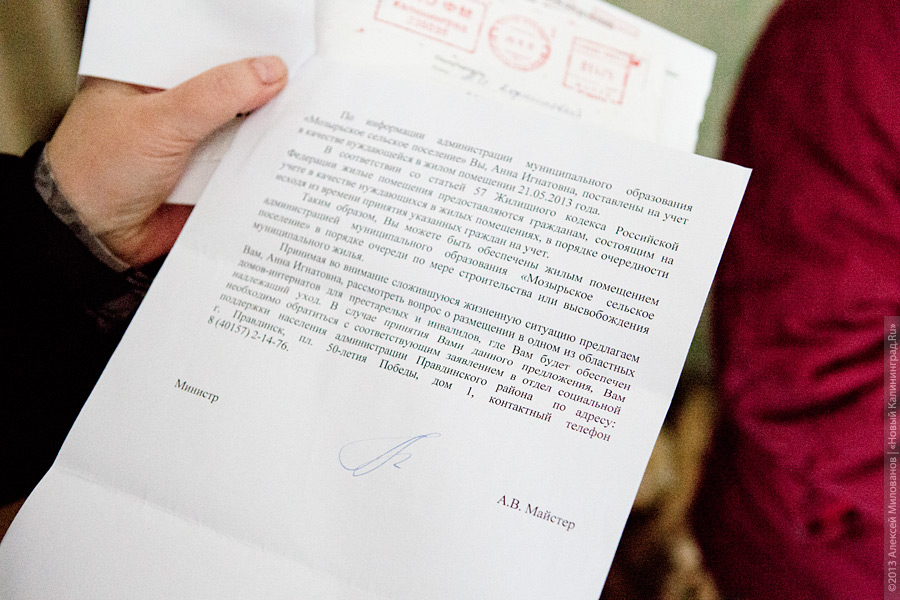 По информации администрации муниципального образования
«Мозырьское сельское поселение» Вы, Анна Игнатовна, поставлены на учет
в качестве нуждающейся в жилом помещении 21.05.2013 года.
В соответствии со статьей 57 Жилищного кодекса Российской
Федерации жилые помещения предоставляются гражданам, состоящим на
учете в качестве нуждающихся в жилых помещениях, в порядке очередности
исходя из времени принятия указанных граждан на учет.
Таким образом, Вы можете быть обеспечены жилым помещением
администрацией муниципального образования «Мозырьское сельское
поселение» в порядке очереди по мере строительства или высвобождения
муниципального жилья.
Принимая во внимание сложившуюся жизненную ситуацию предлагаем
Вам, Анна Игнатовна, рассмотреть вопрос о размещении в одном из областных
домов-интернатов для престарелых и инвалидов, где Вам будет обеспечен
надлежащий уход. В случае принятия Вами данного предложения, Вам
необходимо обратиться с соответствующим заявлением в отдел социальной
поддержки населения администрации Правдинского района по адресу:
г. Правдинск, пл. 50-летия Победы, дом 1, контактный телефон
8 (40157) 2-14-76.
Министр
А.В. Майстер
©2013 Алексей Милованов | «Новый Калининград.Ru»